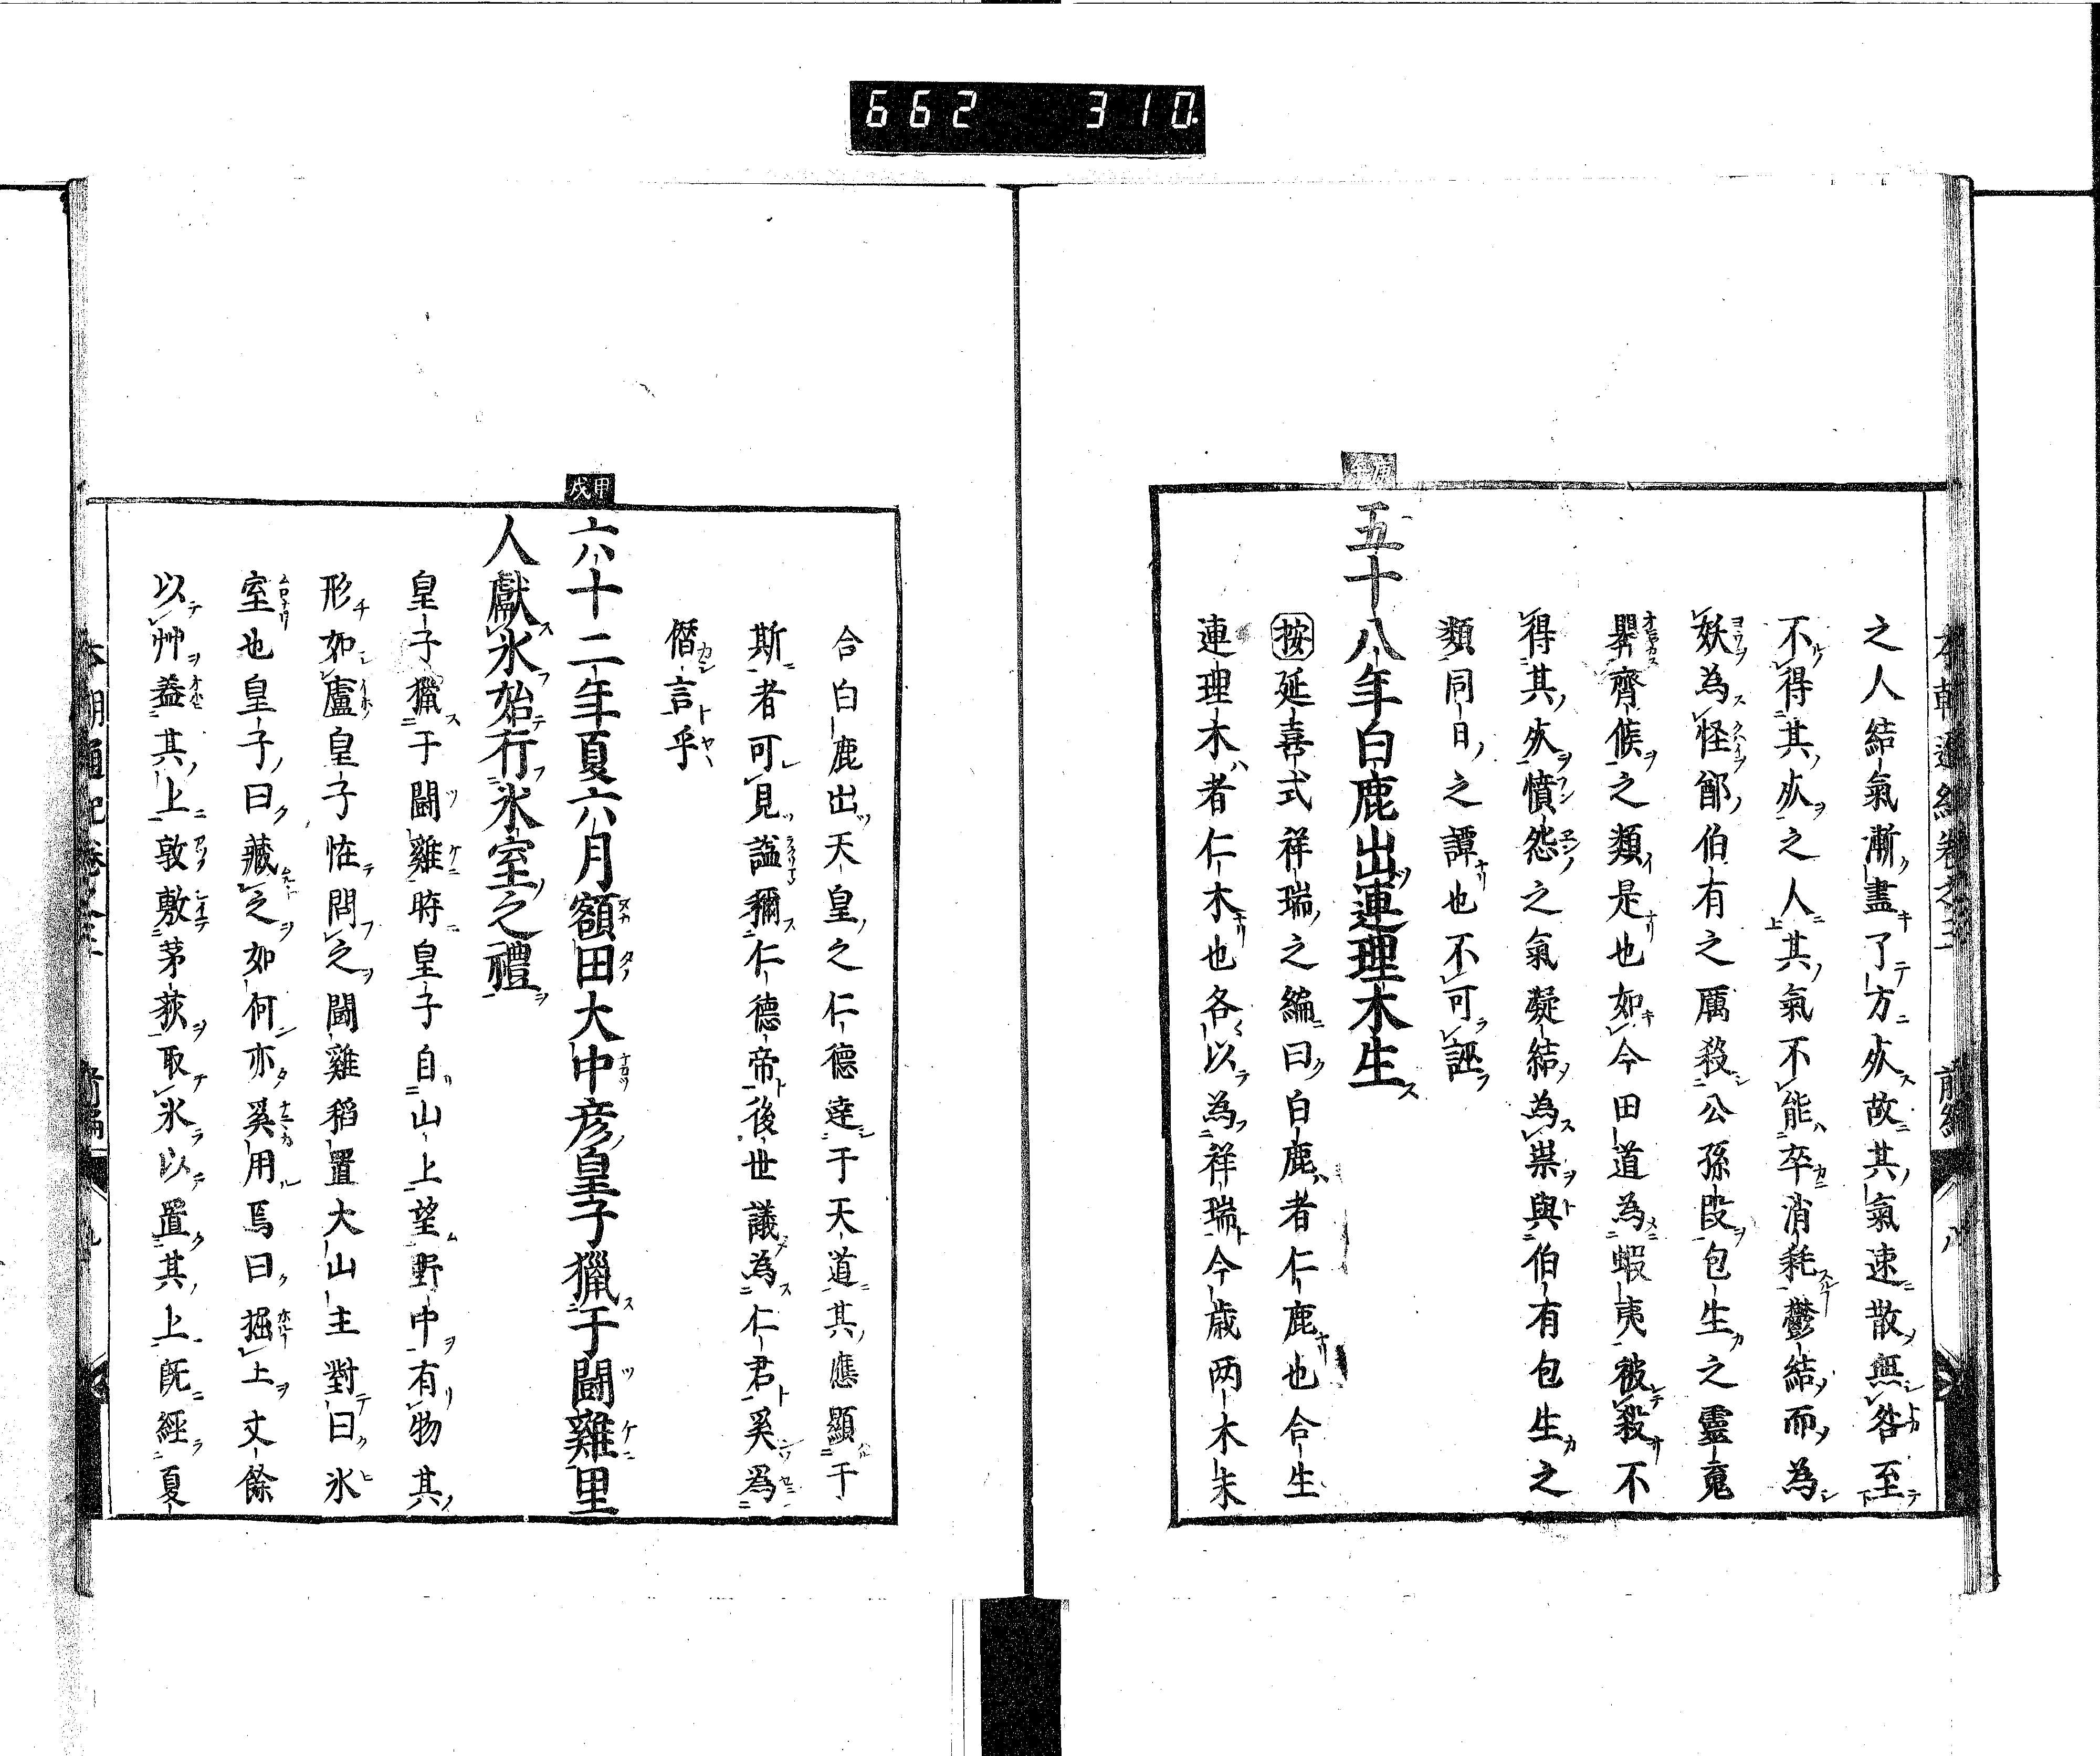 662 310
本朝通紀卷之二 前編 八
之人結氣漸盡了方死故其氣速散無咎至
不得其死之人其氣不能卒消耗鬱結而為
妖為怪鄭伯有之厲殺公孫段包生之靈鬼
齊候之類是也如今田道為蝦夷被殺不
得其死憤怨之氣凝結為祟與伯有包生之
類同日之譚也不可誣
五十八年白鹿出連理木生
按延喜式祥瑞之編曰白鹿者仁鹿也合生
連理木者仁木也各以為祥瑞今歲兩木朱
合白鹿出天皇之仁德達于天道其應顯于
斯者可見謚稱仁德帝後世議為仁君奚爲
僭言乎
甲戌
六十二年夏六月額田大中彥皇子獵于鬪雞里
人獻氷始行氷室之禮
皇子獵于鬪雞時皇子自山上望野中有物其
形如廬皇子恠問之鬪雞稻置大山主對曰氷
室也皇子曰藏之如何亦奚用焉曰掘土丈餘
以艸葢其上敦敷茅荻取氷以置其上旣經夏